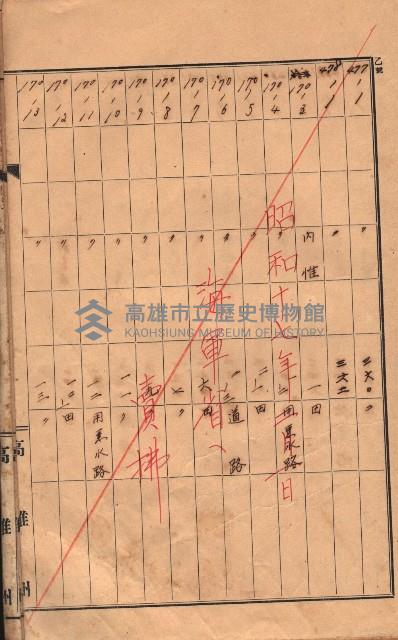 乙號
477-1 〃 三六〇 〃
478-1 〃 三六二
170-3 内惟 一 田
170-4 〃 二 用悪水路
170-5 〃 二一 田
170-6 〃 三 道路
170-7 〃 六 田
170-8 〃 七 〃
170-9 〃
170-10 〃 一一 〃
170-11 〃 一二 用悪水路
170-12 〃 一二 田
170-13 〃 一三 〃
昭和十 年 月 日
海軍省へ
賣拂
高雄州
高雄州
高雄市立歷史博物館
KAOHSIUNG MUSEUM OF HISTORY